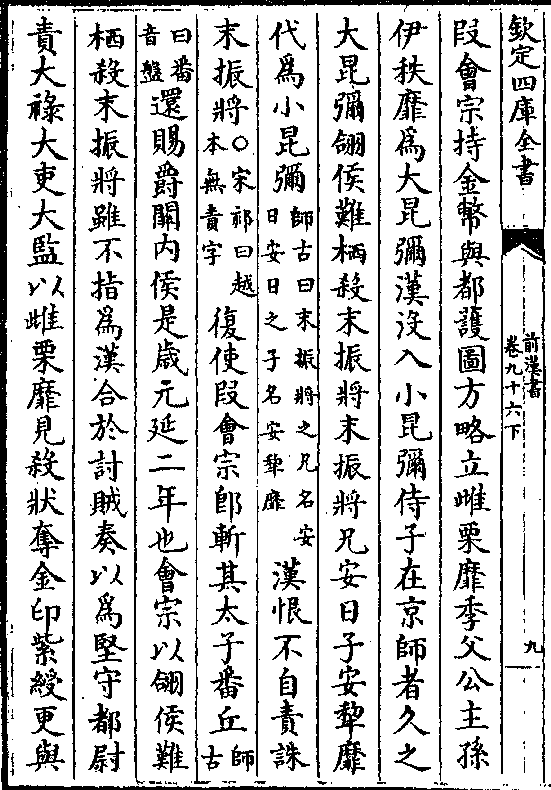 欽定四庫全書
前漢書
卷九十六下
九
段會宗持金幣與都護圖方略立雌栗靡季父公主孫
伊秩靡為大昆彌漢没入小昆彌侍子在京師者久之
大昆彌翎侯難栖殺末振將末振將兄安日子安犂靡
代為小昆彌師古曰末振將之兄名安日安日之子名安犂靡漢恨不自責誅
末振將○宋祁曰越本無責字復使段會宗卽斬其太子番丘師古
曰番音盤還賜爵關内侯是歲元延二年也會宗以翎侯難
栖殺末振將雖不指為漢合於討賊奏以為堅守都尉
責大祿大吏大監以雌栗靡見殺狀奪金印紫綬更與